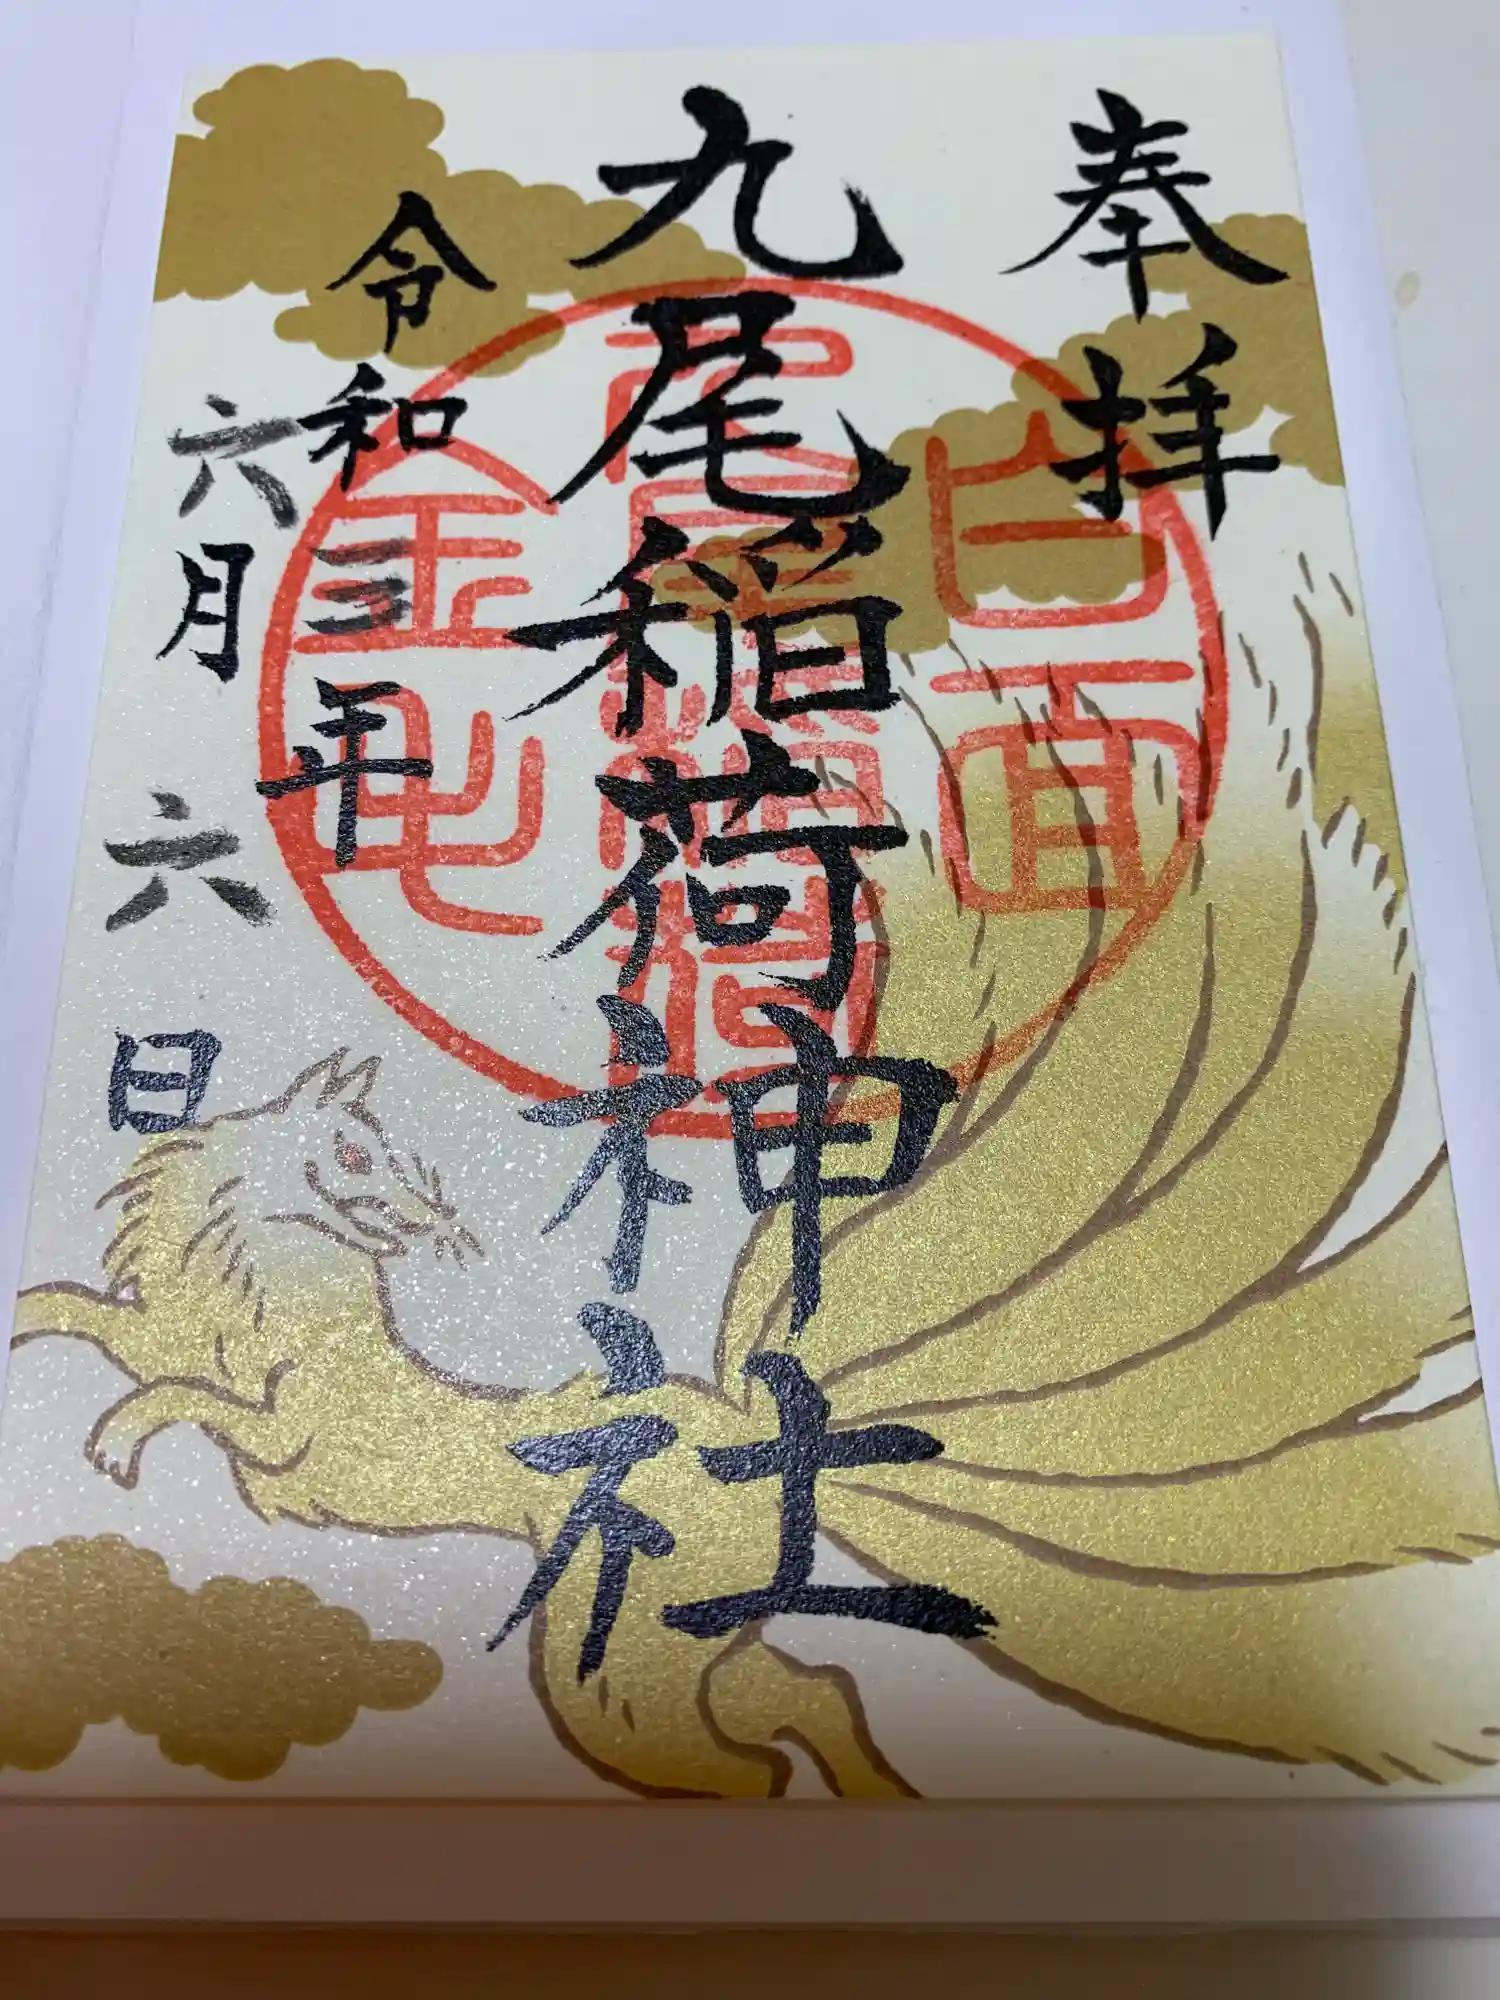 奉拝
九尾稲荷神社
白面
九尾稲荷
金毛
令和三年
六月六日